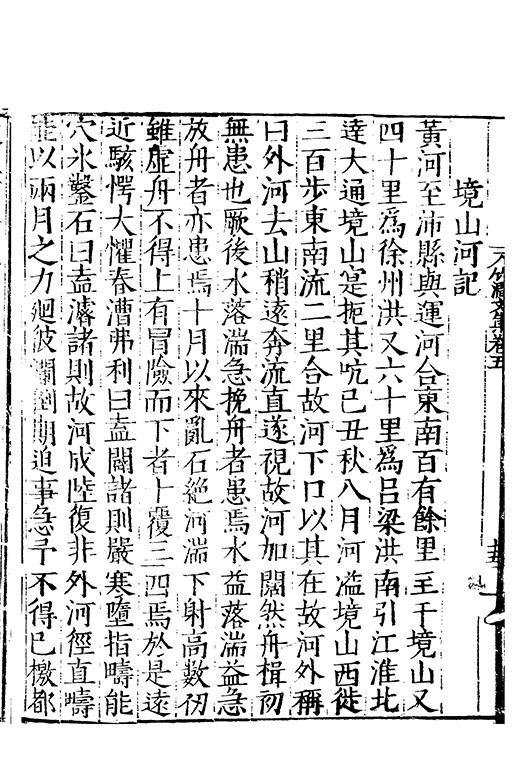 境山河記
黃河至沛縣與運河合東南百有餘里至于境山又
四十里爲徐州洪又六十里爲呂梁洪南引江淮北
達大通境山寔扼其吭己丑秋八月河溢境山西徙
三百步東南流二里合故河下口以其在故河外稱
曰外河去山稍遠奔流直遂視故河加闊然舟楫初
無患也厥後水落湍急挽舟者患焉水益落湍益急
放舟者亦患焉十月以來亂石絕河湍下射高數仞
雖虛舟不得上有冒險而下者十覆三四焉於是遠
近駭愕大懼春漕弗利曰盍闢諸則嚴寒墮指疇能
穴氷鑿石曰盍濬諸則故河成陸復非外河徑直疇
能以兩月之力廻彼瀾劉期迫事急予不得已檄都
卷五